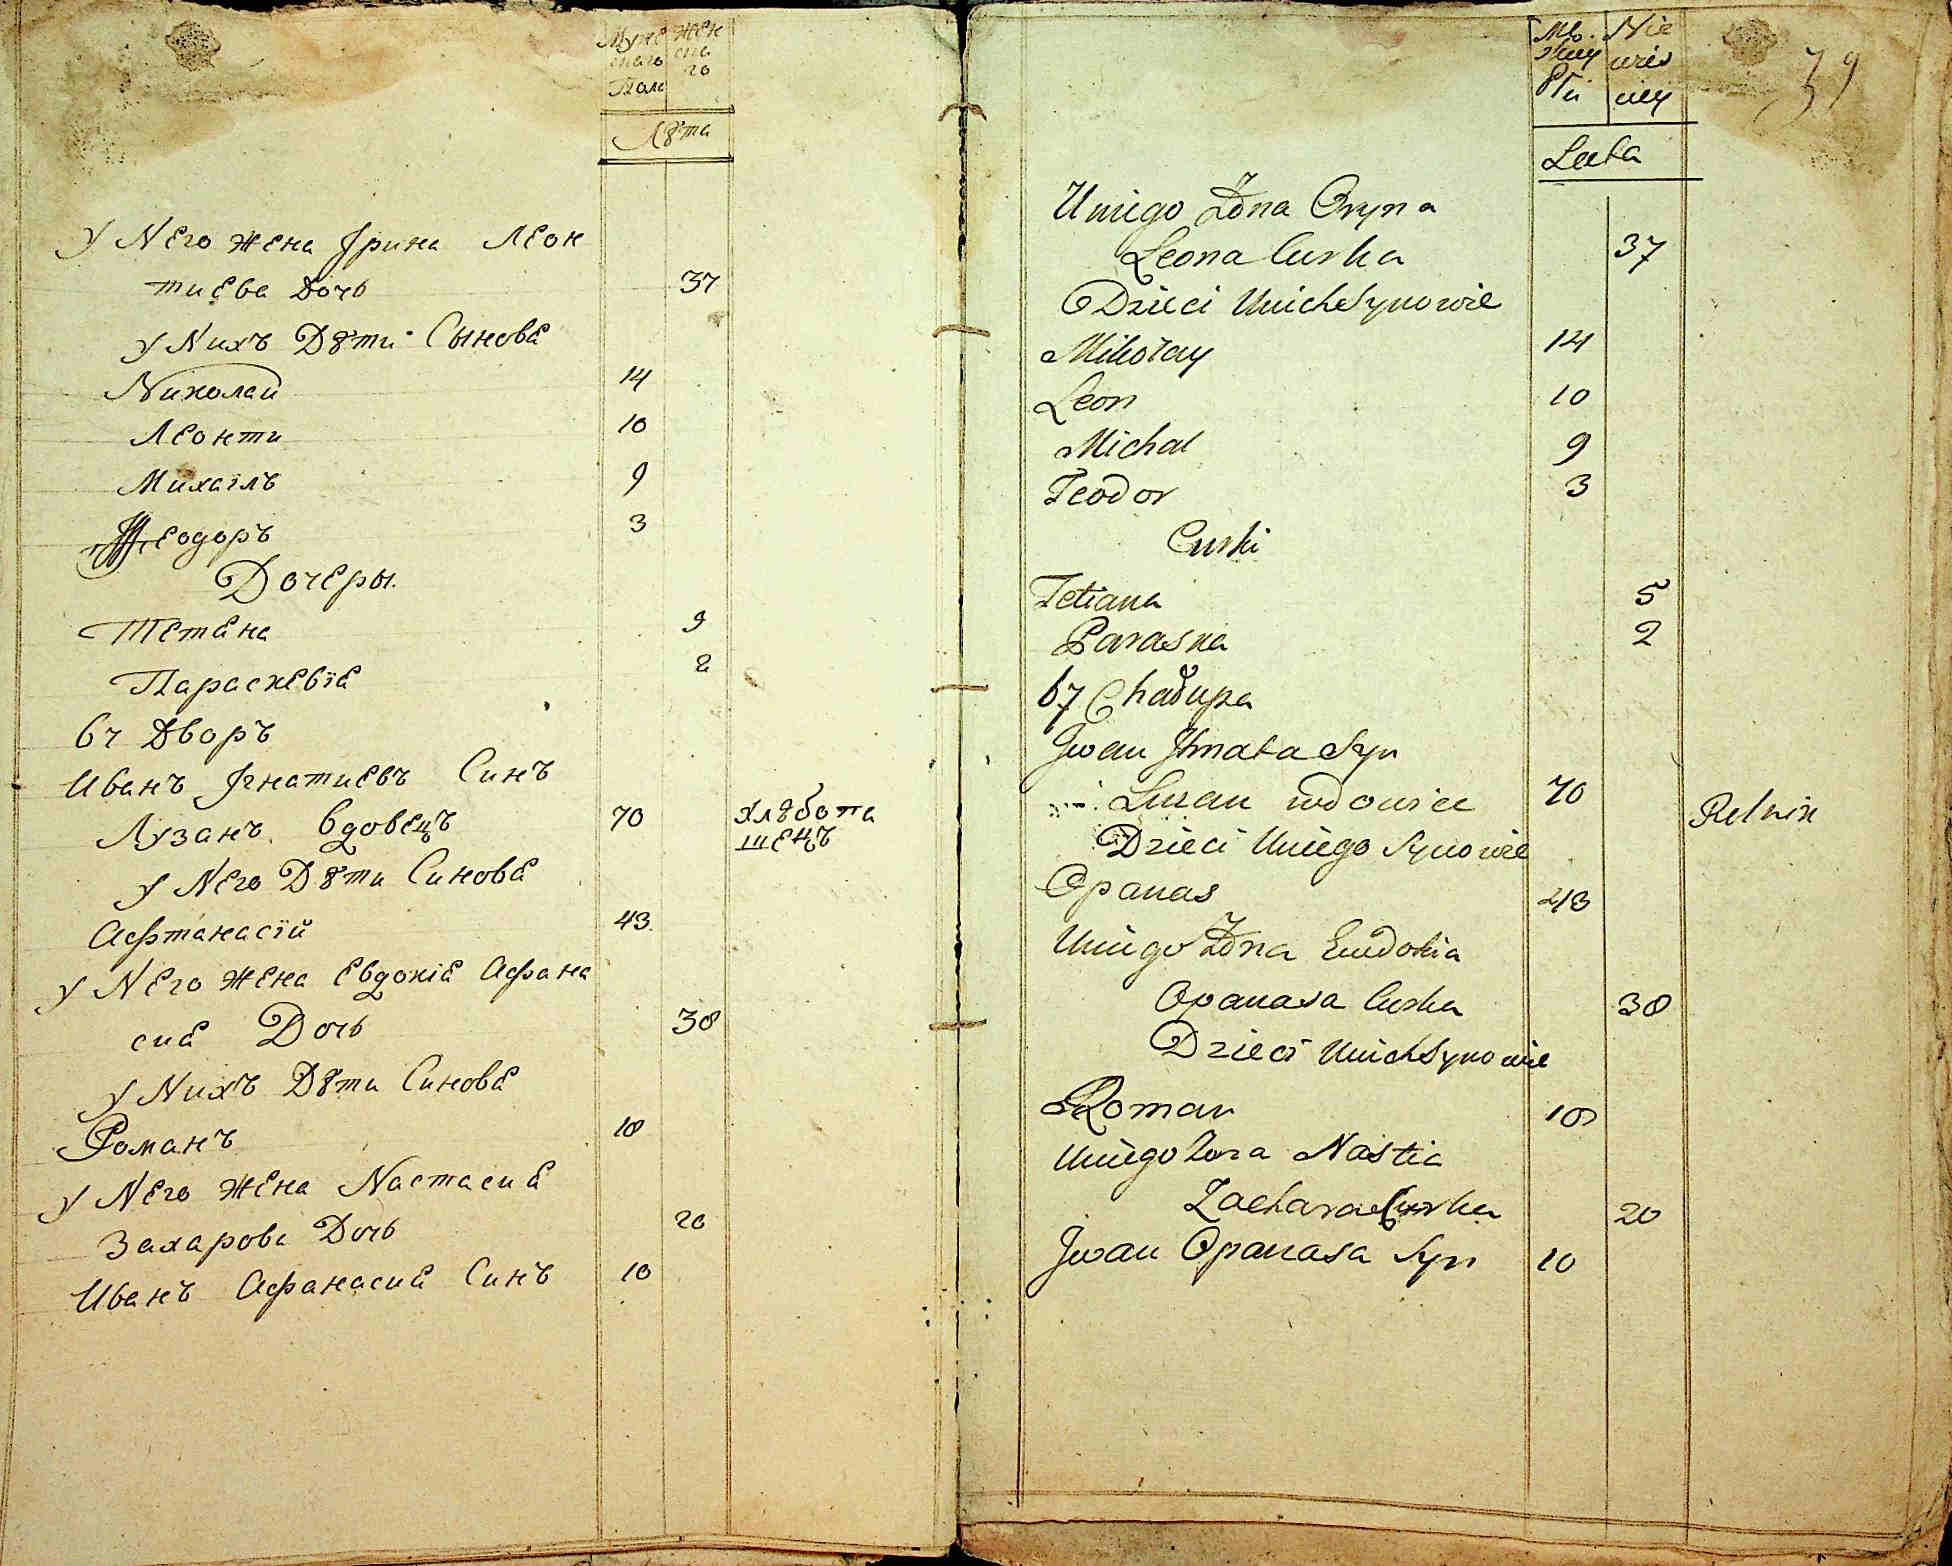 Мужескаго Полу Женскаго
Лѣта
у Него жена Ірина Леон
тиева Дочь 37
у Нихъ Дѣти Сыновѣ
Николай 14
Леонти 10
Михаілъ 9
Теодоръ 3
Дочеры
Тетѣна 9
Параскевіѣ 2
67 Дворъ
Иванъ Ігнатиевъ Синъ
Лузанъ вдовецъ 70 хлѣбопа
шецъ
у Него Дѣти Синовѣ
Афтанасій 43
у Него жена Евдокіѣ Афана
сиѣ Дочь 38
у Нихъ Дѣти Синовѣ
Романъ 18
у Него жена Настасиѣ
Захарова Дочь 20
Иванъ Афанасиѣ Синъ 10
39
Męzkiey Płci Niewiesciey
Lata
Uniego Żona Oryna
Leona Curka 37
Dzieci Unich Synowie
Mikołay 14
Leon 10
Michał 9
Teodor 3
Curki
Tetiana 5
Paraska 2
67 Chałupa
Jwan Jhnata Syn
Luzan wdowiec 70 Rolnik
Dzieci Uniego Synowie
Opanas 43
Uniego Żona Eudokia
Opanasa Curka 38
Dzieci Unich Synowie
Roman 18
Uniego Żona Nastia
Zachara Curka 20
Jwan Opanasa Syn 10